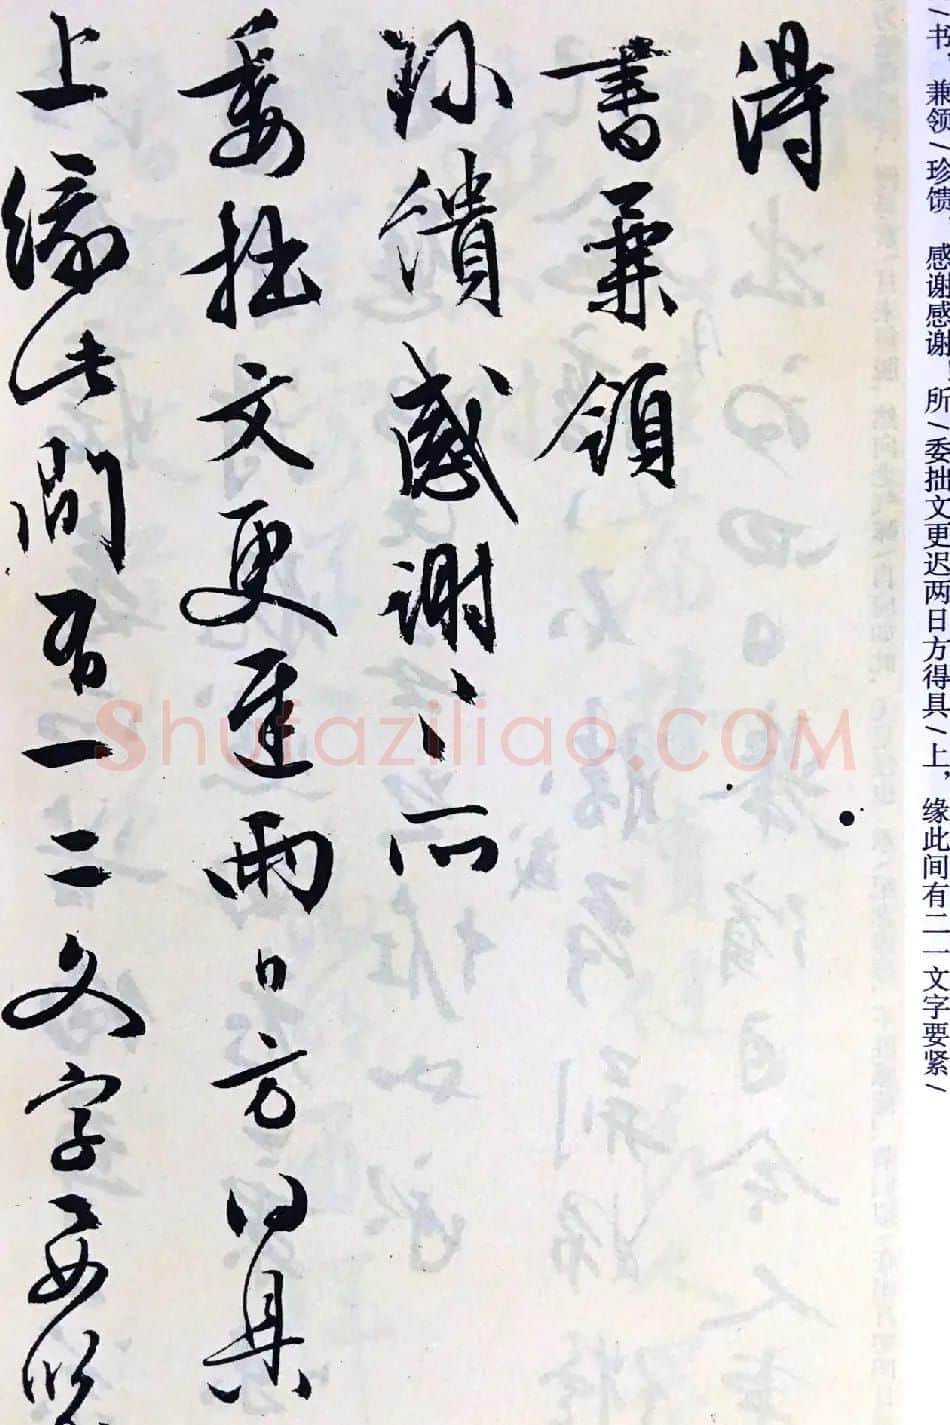 得
書兼領
珎饋感謝〻所
委拙文更遲兩日方得具
上緣此間有一二文字要緊
/书，兼领/珍馈，感谢感谢！所/委拙文更迟两日方得具/上，缘此间有二一文字要紧/
Shufaziliao.COM